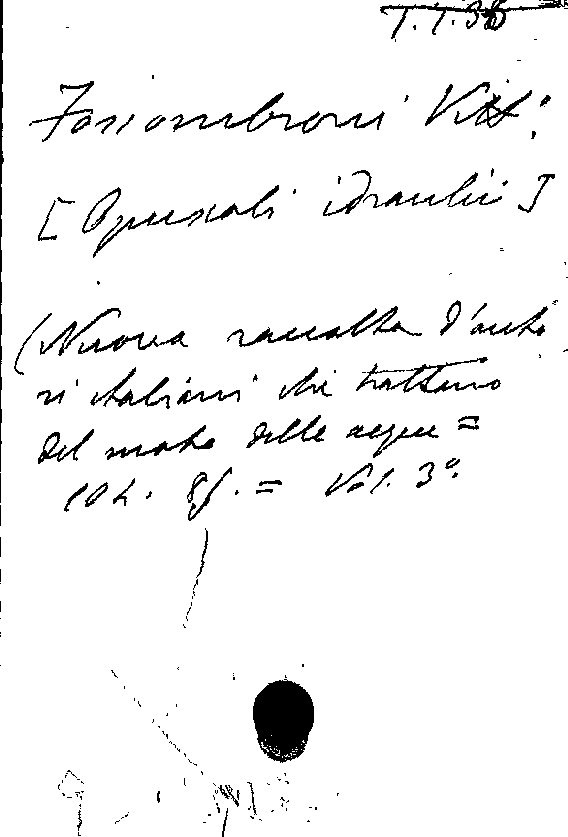 T.T.35
Fossombroni Vitt:
[Opuscoli idraulici]
(Nuova raccolta d'auto
ri italiani che trattano
del moto delle acque =
Vol. 3º.